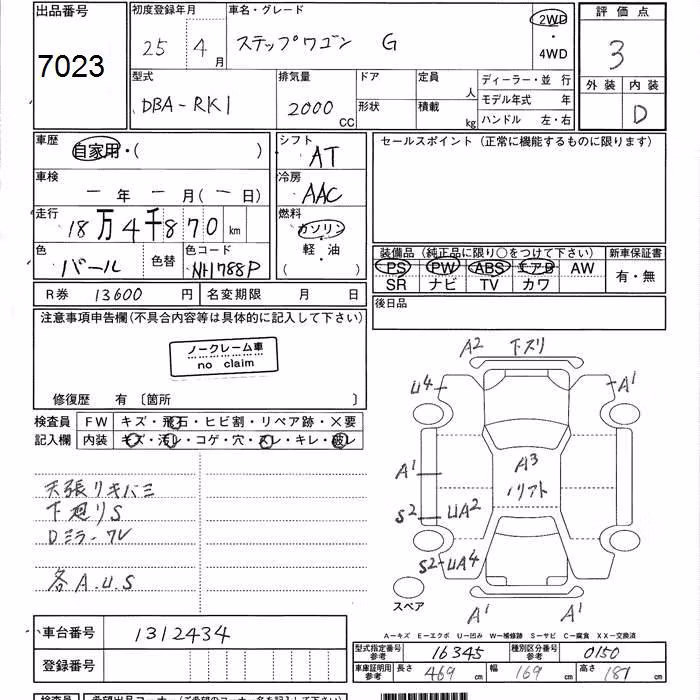 出品番号
7023
初度登録年月
25 4月
車名・グレード
ステップワゴン G
2WD
・
4WD
評価点
3
外装 内装
D
型式
DBA-RK1
排気量
2000 CC
ドア
形状
定員 人
積載 kg
ディーラー・並行
モデル年式 年
ハンドル 左・右
車歴
自家用・( )
車検
一年 一月(一日)
走行
18万4千870 km
色
パール
色替
色コード
NH788P
シフト
AT
冷房
AAC
燃料
ガソリン
軽・油
( ・ )
セールスポイント(正常に機能するものに限ります)
装備品(純正品に限り○をつけて下さい)
PS PW ABS エアB AW
SR ナビ TV カワ
新車保証書
有・無
後日品
R券 13600 円
名変期限 月 日
注意事項申告欄(不具合内容等は具体的に記入して下さい)
ノークレーム車
no claim
修復歴 有〔箇所 〕
検査員
記入欄
FW キズ・飛石・ヒビ割・リペア跡・×要
内装 キズ・汚レ・コゲ・穴・スレ・キレ・破レ
天張リキバミ
下廻りS
Dミラーワレ
各A.U.S
A2 下スリ
U4
A1
A1
A3
S2
UA2
S2-UA4
A1
A1
スペア
A-キズ E-エクボ U-凹み W-補修跡 S-サビ C-腐食 XX-交換済
車台番号
1312434
登録番号
型式指定番号
参考
16345
種別区分番号
参考
0150
車庫証明用
参考
長さ 469 cm
幅 169 cm
高さ 181 cm
検査員
希望出品コーナー